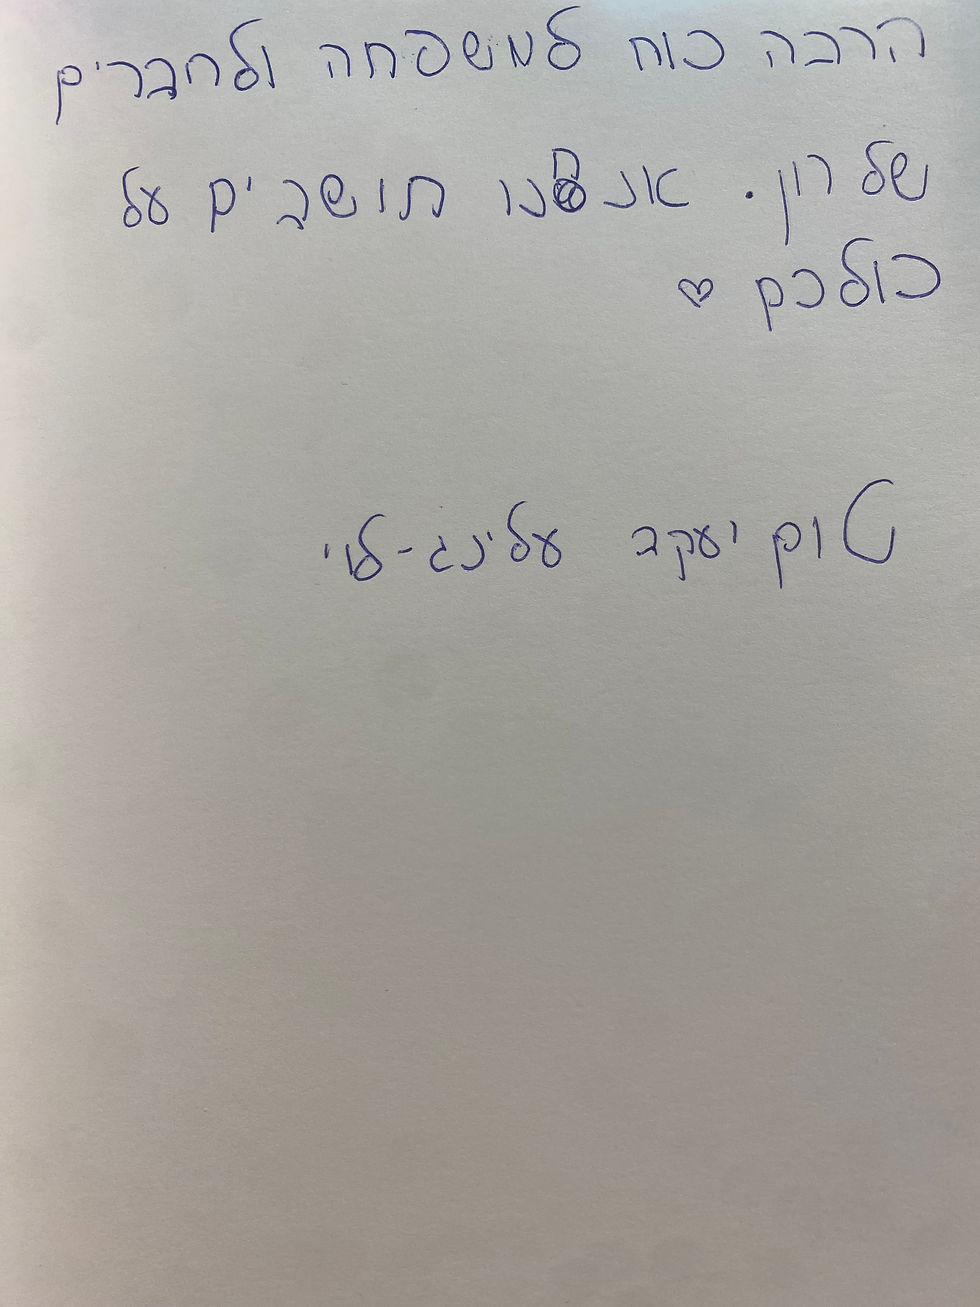 הרבה כוח למשפחה ולחברים
של רון. אנחנו תושבים על
כולכם ♡
טום יעקב עלינג-לוי